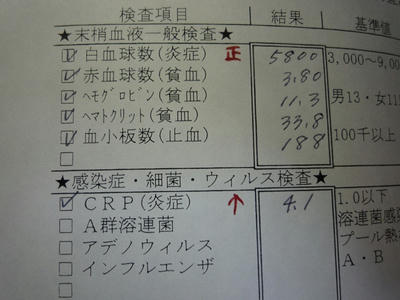 検査項目 結果 基準値
★末梢血液一般検査★
白血球数(炎症) 正 5800 3,000～9,0
赤血球数(貧血) 3.80
ﾍﾓｸﾞﾛﾋﾞﾝ(貧血) 11.3 男13・女11
ﾍﾏﾄｸﾘｯﾄ(貧血) 33.8
血小板数(止血) 188 100千以上
★感染症・細菌・ウィルス検査★
CRP(炎症) ↑ 4.1 1.0以下
A群溶連菌 溶連菌感
アデノウィルス プール熱
インフルエンザ A・B